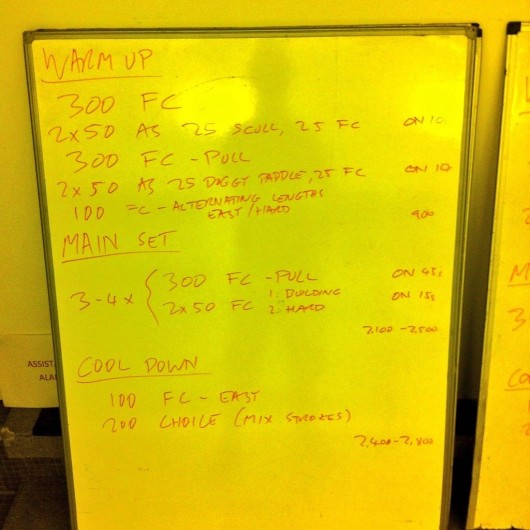 WARM UP
300 FC
2x50 AS 25 SCULL, 25 FC ON 10
300 FC - PULL
2x50 AS 25 DOGGY PADDLE, 25 FC ON 10
100 FC - ALTERNATING LENGTHS
EASY/HARD 900
MAIN SET
3-4x { 300 FC - PULL ON 45s
2x50 FC 1. BUILDING 2. HARD ON 15s
2,100 - 2,500
COOL DOWN
100 FC - EASY
200 CHOICE (MIX STROKES)
2,400 - 2,800
ASSIST
ALA
M
3
CO